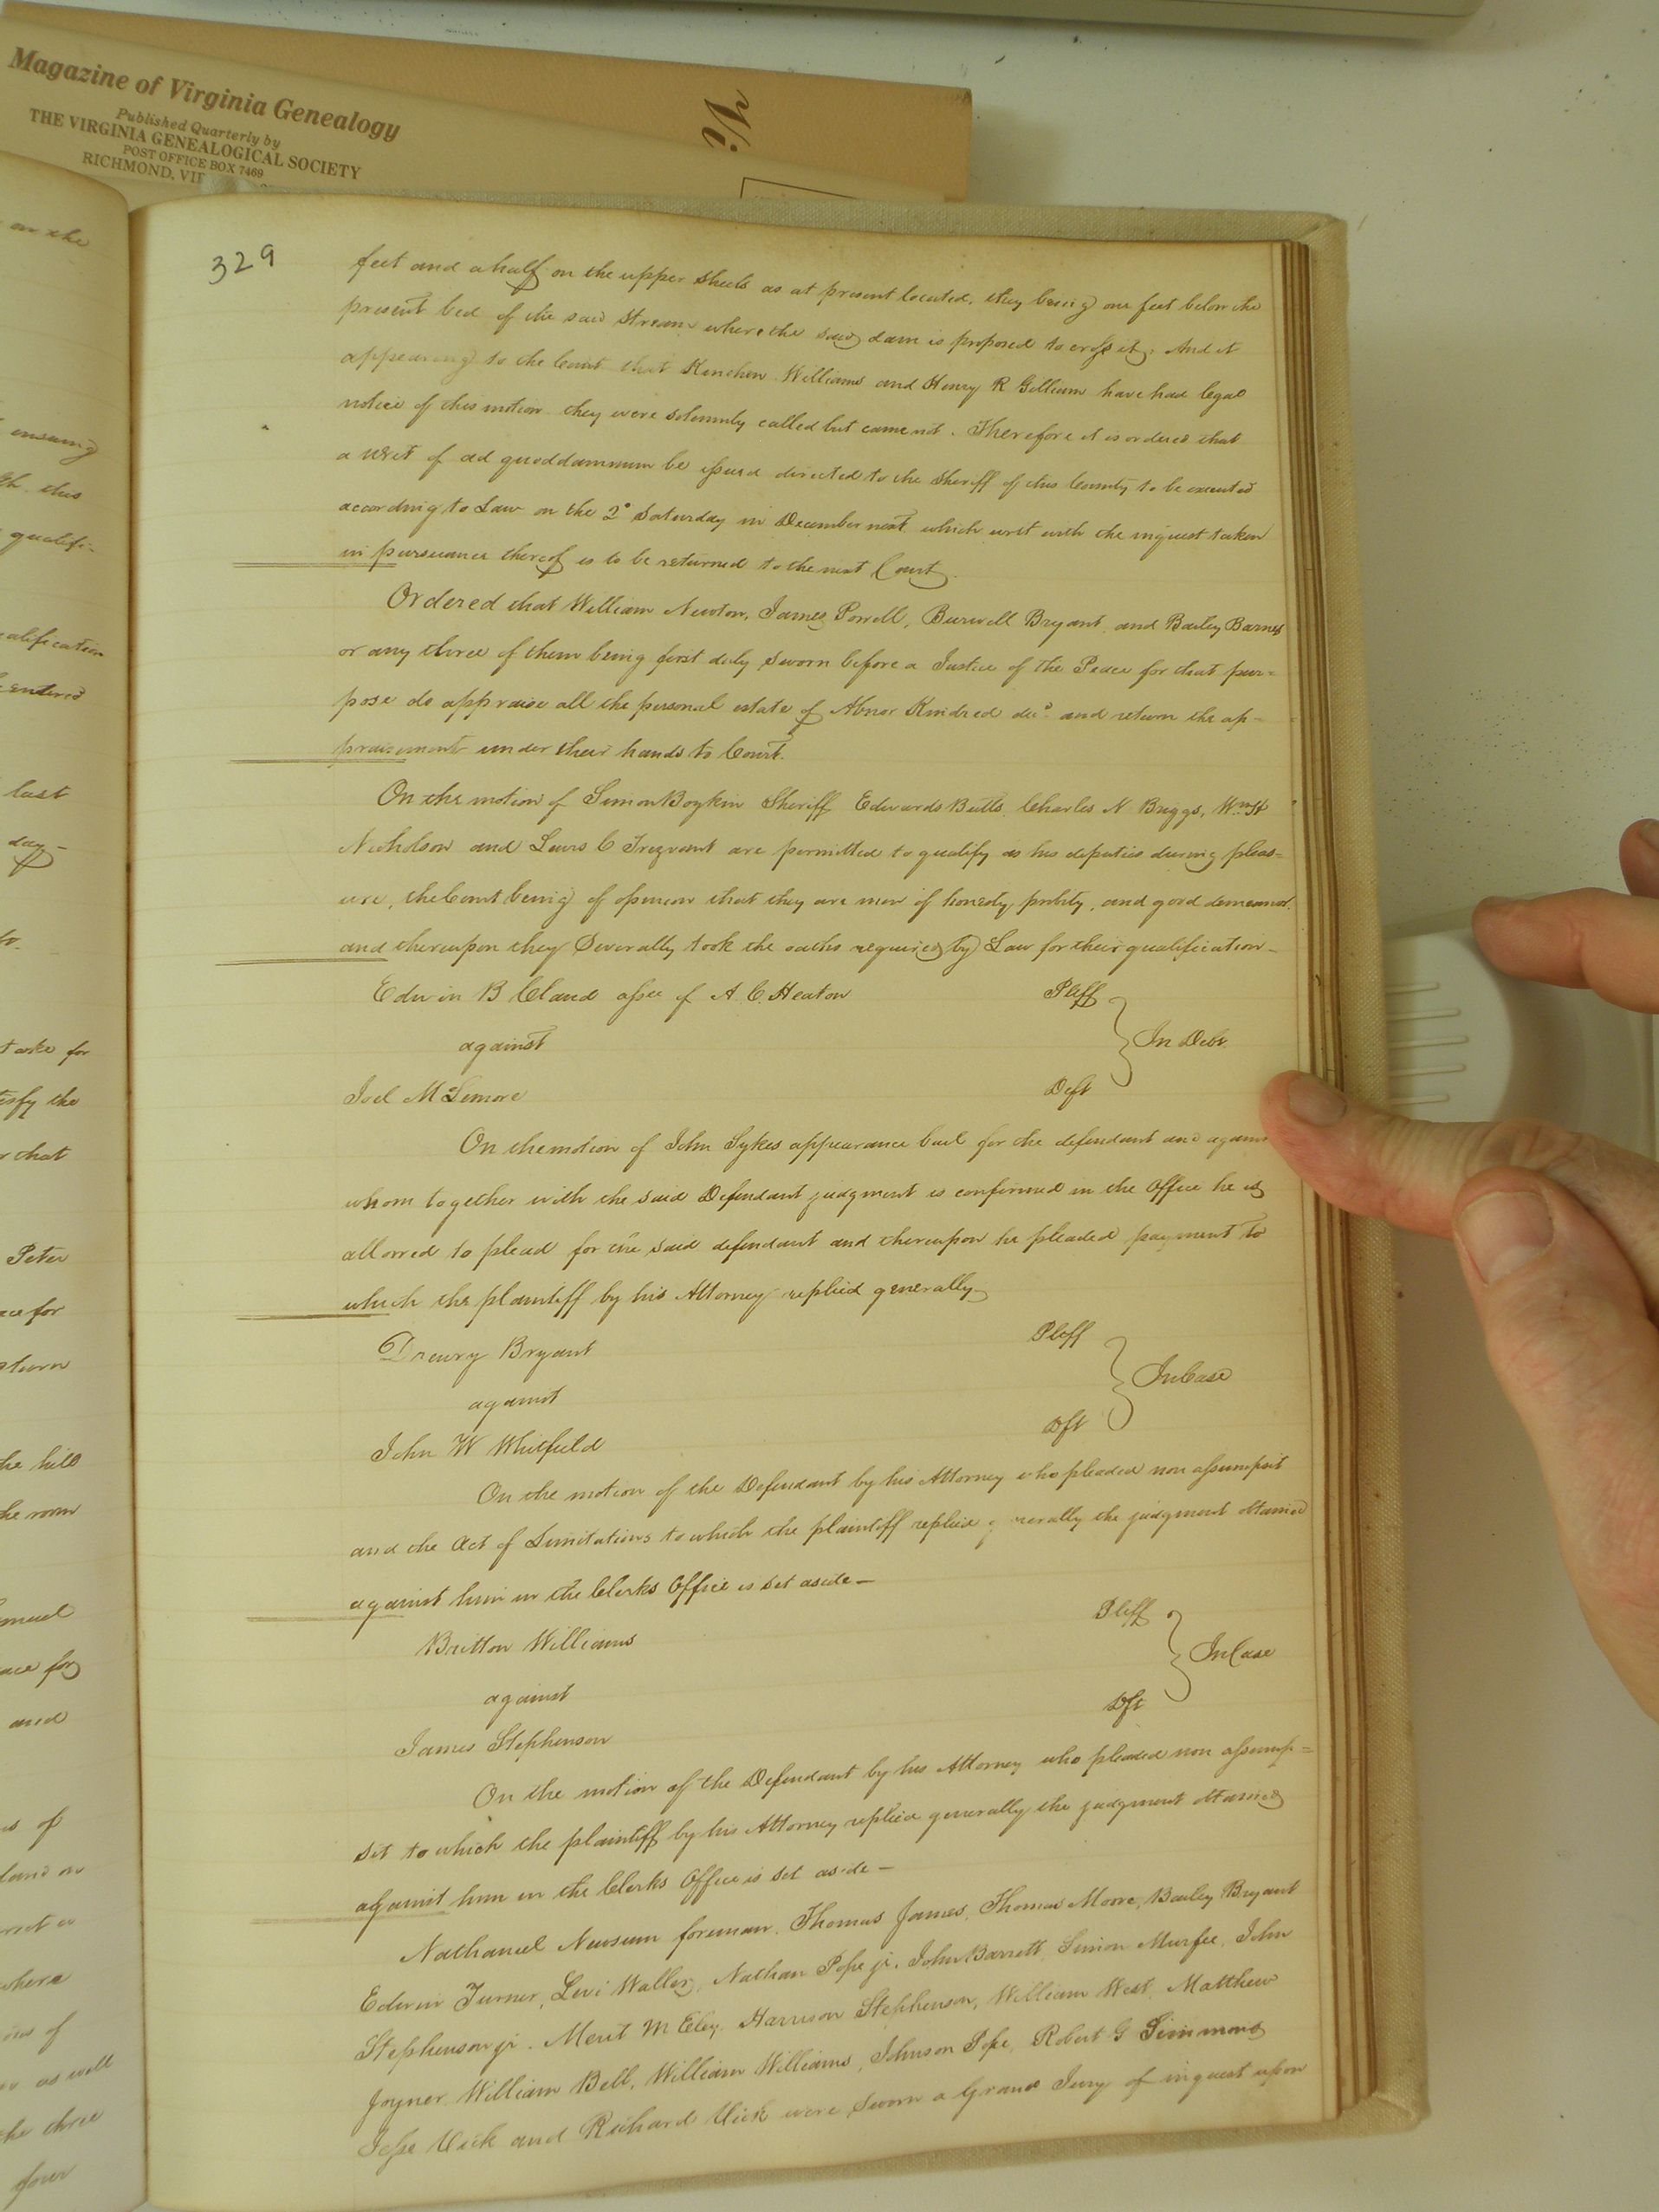 Magazine of Virginia Genealogy
Published Quarterly by
THE VIRGINIA GENEALOGICAL SOCIETY
POST OFFICE BOX 7469
RICHMOND, VIR
on the
ensuing
this
qualifi-
alification
entered
last
day -
take for
the
that
Peter
for
the hill
the room
for
and
of
land on
where
of
as well
the three
four
329
feet and a half on the upper sheels as at present located, they being one feet below the
present bed of the said Stream where the said dam is proposed to cross it. And it
appearing to the Court that Kinchen Williams and Henry R Gilliam have had legal
notice of this motion they were solemnly called but came not. Therefore it is ordered that
a writ of ad quoddamnum be issued directed to the Sheriff of this County to be executed
according to Law on the 2d Saturday in December next which writ with the inquest taken
in pursuance thereof is to be returned to the next Court.
Ordered that William Newton, James Powell, Burwell Bryant and Bailey Barnes
or any three of them being first duly sworn before a Justice of the Peace for that pur=
pose do appraise all the personal estate of Abner Kindred decd. and return the ap-
praisement under their hands to Court.
On the motion of Simon Boykin Sheriff Edwards Butts, Charles N Briggs, Wm H
Nicholson and Lewis C Trezvant are permitted to qualify as his deputies during pleas=
ure, the Court being of opinion that they are men of honesty, probity, and good demeanor.
and thereupon they Severally took the oaths required by Law for their qualification -
Edwin B Cland assee of A. C. Heaton Pltff
against In Debt
Joel McLemore Deft
On the motion of John Sykes appearance bail for the defendant and against
whom together with the said Defendant judgment is confirmed in the Office he is
allowed to plead for the said defendant and thereupon he pleaded payment to
which the plaintiff by his Attorney replied generally
Drewry Bryant Pltff
against In Case
John W Whitfield Dft
On the motion of the Defendant by his Attorney who pleaded non assumpsit
and the Act of Limitations to which the plaintiff replied generally the judgment obtained
against him in the Clerks Office is set aside -
Britton Williams Pltff
against In Case
James Stephenson Dft
On the motion of the Defendant by his Attorney who pleaded non assump=
sit to which the plaintiff by his Attorney replied generally the judgment obtained
against him in the Clerks Office is set aside -
Nathaniel Newsum foreman, Thomas James, Thomas Moore, Bailey Bryant
Edwin Turner, Levi Waller, Nathan Pope jr, John Barrett, Simon Murfee, John
Stephenson jr. Merit M Eley. Harrison Stephenson, William West, Matthew
Joyner, William Bell, William Williams, Johnson Pope, Robert G Simmons
Jesse Vick and Richard Vick were sworn a Grand Jury of inquest upon